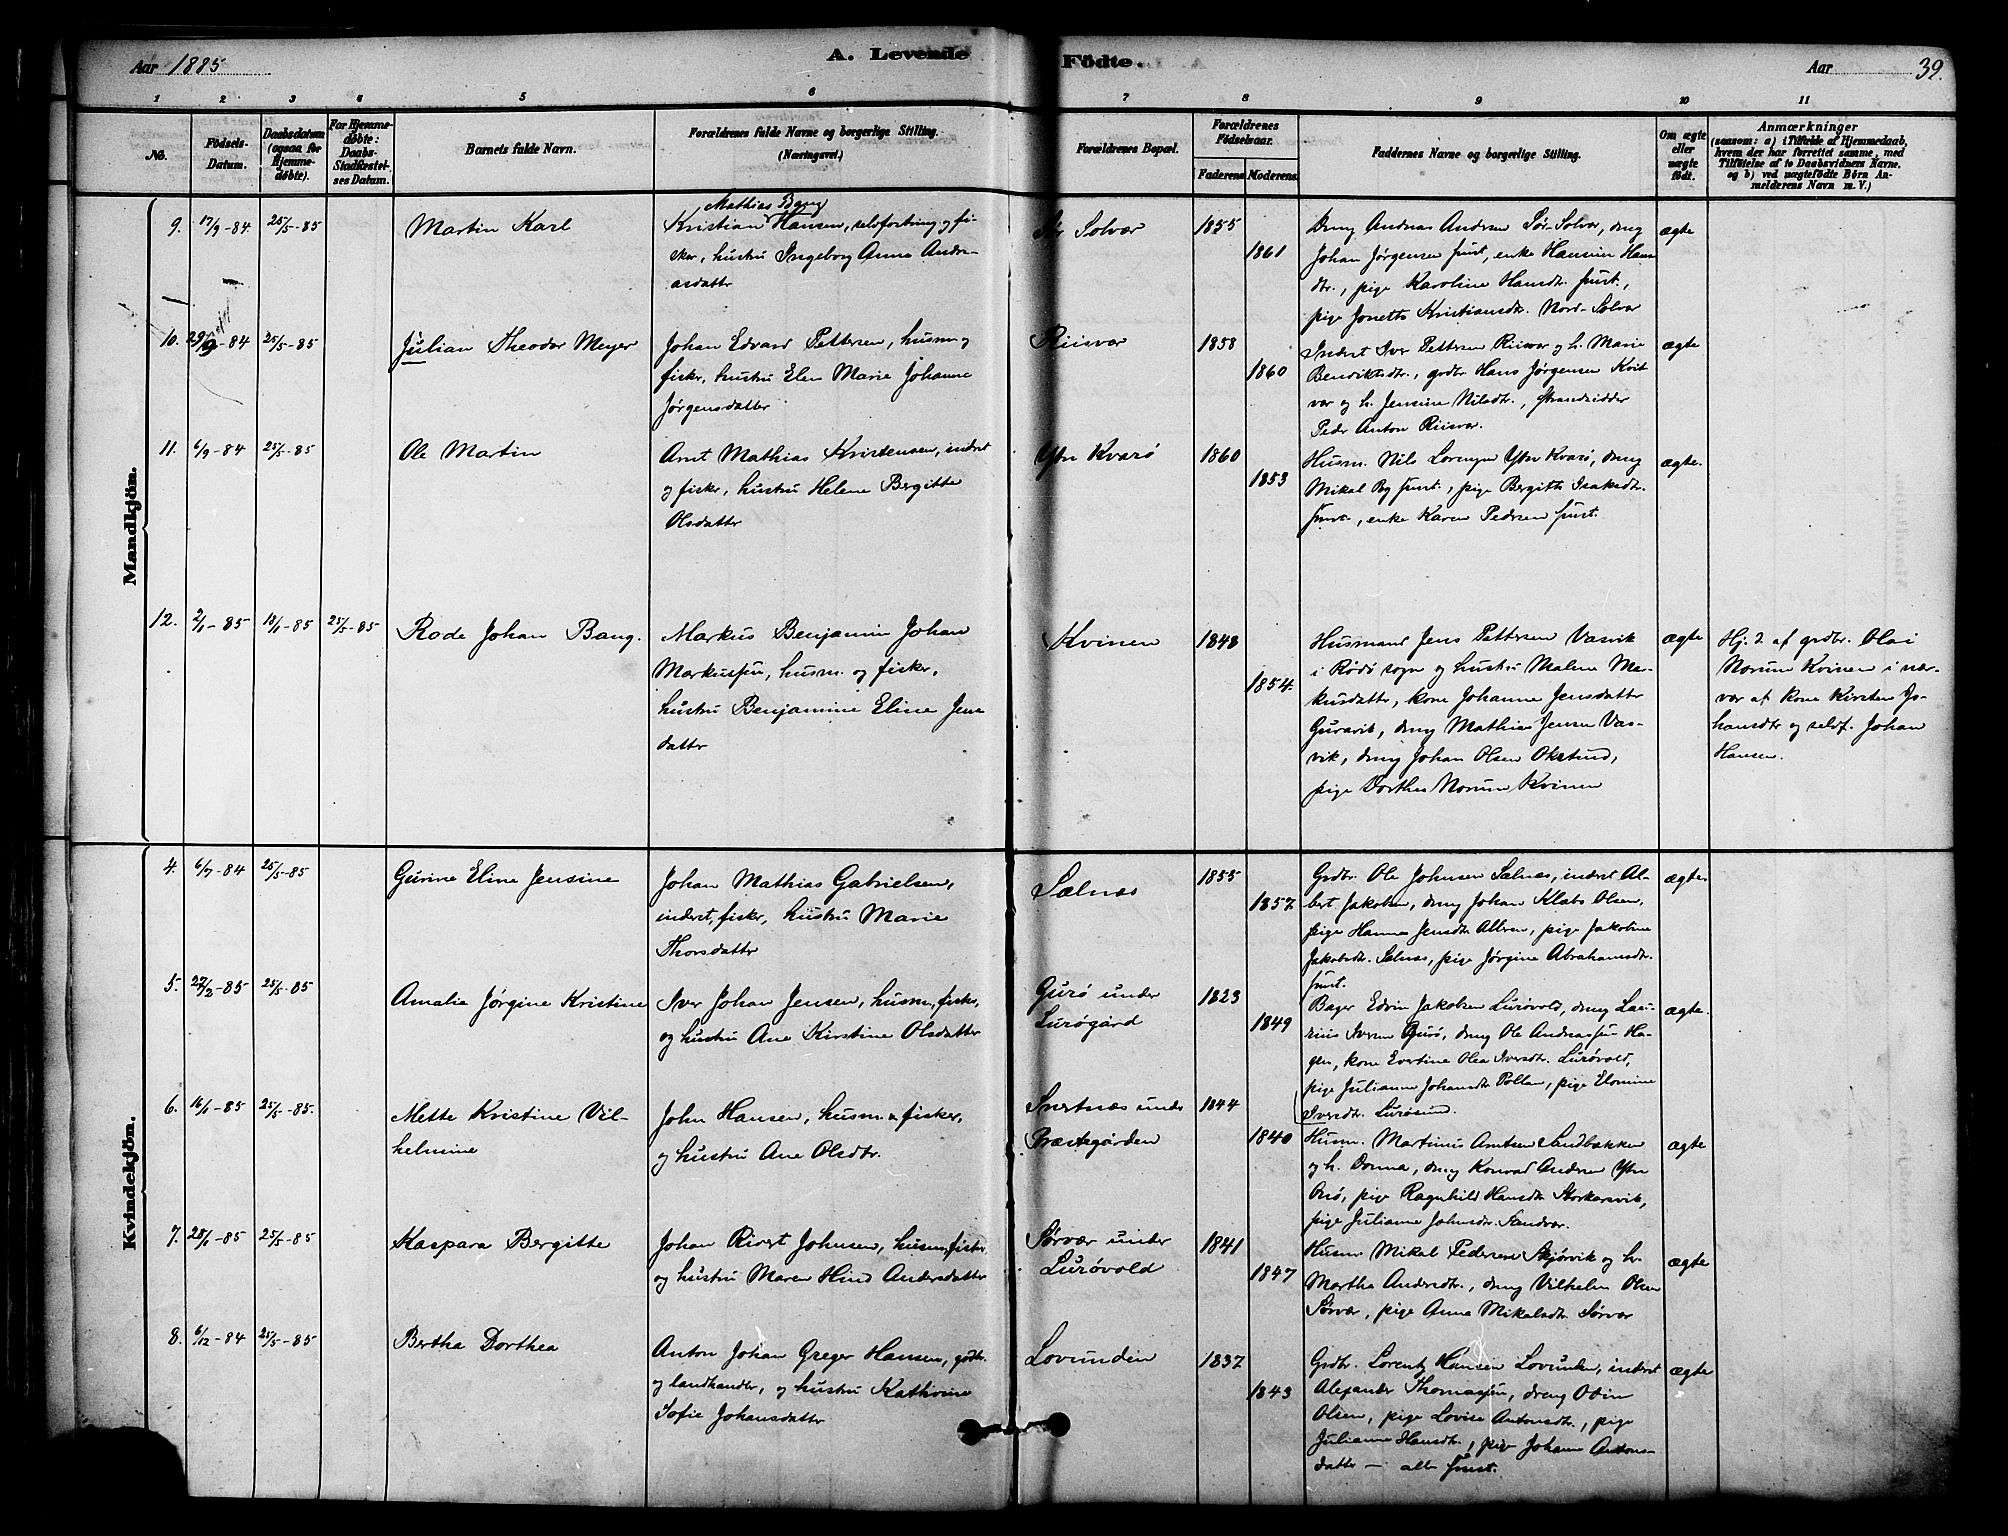 Aar 1885
A. Levende
Födte.
Aar
39.
1 2 3 4 5 6 7 8 9 10 11
No.
Födsels-
Datum.
Daabsdatum
(ogsaa for
Hjemme-
döbte).
For Hjemme-
döbte:
Daabs-
Stadfæstel-
ses Datum.
Barnets fulde Navn.
Forældrenes fulde Navne og borgerlige Stilling.
(Næringsvei.)
Forældrenes Bopæl.
Forældrenes
Födselsaar.
Faderens.
Moderens.
Faddernes Navne og borgerlige Stilling.
Om ægte
eller
uægte
födt.
Anmærkninger
(saasom: a) i Tilfælde af Hjemmedaab,
hvem der har forrettet samme, med
Tilföielse af to Daabsvidners Navne.
og b) ved uægtefödte Börn An-
melderens Navn m. V.)
Mandkjön.
9. 17/9-84 25/5-85
Martin Karl
Mathias Bang
Kristian Hansen, selvforsörg. og fi-
sker, hustru Ingeborg Anna Andre-
asdatter
Sör Solvær
1855
1861
Dreng Andreas Andersen Sör-Solvær, dreng
Johan Jörgensen smst., enke Hansine Hans
dtr., pige Karoline Hansdtr. smst.,
pige Jonette Kristiansdtr. Nord-Solvær
ægte
10. 29/9-84 25/5-85
Julian Theodor Meyer
Johan Edvard Pettersen, husm. og
fisker, hustru Elen Marie Johanne
Jörgensdatter
Riisvær
1858
1860
Inderst Iver Pettersen Riisvær og h. Marie
Bendiktsdtr., grdbr. Hans Jörgensen Kvit
vær og h. Jensine Nilsdtr., strandsidder
Peder Anton Riisvær.
ægte
11. 6/9-84 25/5-85
Ole Martin
Arnt Mathias Kristensen, inderst
og fisker, hustru Helene Bergitte
Olsdatter
Ytre Kvarö
1860
1853
Husm. Nils Lorensen Ytre Kvarö, dreng
Mikal Bg smst., pige Bergitte Isaksdtr.
smst., enke Karen Pedersen smst.
ægte.
12. 2/1-85 18/1-85 25/5-85
Rode Johan Bang.
Markus Benjamin Johan
Markussen, husm. og fisker,
hustru Benjamine Eline Jens
datter
Kvinen
1848
1854.
Husmand Jens Pettersen Vasvik
i Rödö sogn og hustru Malene Mar-
kusdatter, kone Johanne Jensdatter
Guravik, dreng Mathias Jensen Vas-
vik, dreng Johan Olsen Okstind,
pige Dorthea Norum Kvinen
ægte
Hj. d. af grdbr. Olai
Norum Kvinen i nær-
vær af kone Kirsten Jo-
hansdtr og selvf. Johan
Hansen.
Kvindekjön.
4. 6/7-84 25/5-85
Gurine Eline Jensine
Johan Mathias Gabrielsen,
inderst, fisker, hustru Marie
Thorsdatter
Selnæs
1855
1857
Grdbr. Ole Johnsen Selnæs, inderst Al-
bert Jakobsen, dreng Johan Klabo Olsen,
pige Hanna Jensdtr. Alteren, pige Jakobine
Jakobsdtr. Selnæs, pige Jörgine Abrahamsdtr.
smst.
ægte
5. 27/2-85 25/5-85
Amalia Jörgine Kristine
Iver Johan Jensen, husm., fisker,
og hustru Ane Kirstine Olsdatter
Gurö under
Lurögård
1823
1849
Bager Edvin Jakobsen Lurövold, dreng Lau-
rius Iversen Gurö, dreng Ole Andreassen Ha-
gen, kone Evertine Olea Iversdtr. Lurövold,
pige Julianne Johansdtr. Pollen, pige Elomine
Iversdtr. Lurösund.
ægte.
6. 16/1-85 25/5-85.
Mette Kristine Vil-
helmine
John Hansen, husm. & fisker,
og hustru Ane Olsdtr.
Svertnæs under
Præstegården
1844
1840
Husm. Martinus Arntsen Sandbakken
og h. Donna, dreng Konrad Andersen Ytre
Onö, pige Ragnhild Hansdtr. Storkarsvik,
pige Julianne Johnsdtr. Sandvær.
ægte
7. 28/1-85 25/5-85
Kaspara Bergitte
Johan Rivert Johnsen, husm., fisker
og hustru Maren Hind Andersdatter
Sörvær under
Lurövold
1841
1847
Husm. Mikal Pedersen Skjørvik og h.
Martha Andersdtr., dreng Vilhelm Olsen
Sörvær, pige Anna Mikalsdtr. Sörvær
ægte
8. 6/12-84 25/5-85
Bertha Dorthea
Anton Johan Greger Hansen, grdbr.
og landhandler, og hustru Kathrine
Sofie Johansdatter
Lovunden
1837
1843
Grdbr. Lorentz Hansen Lovunden, inderst
Alexander Thomassen, dreng Odin
Olsen, pige Lovise Antonsdtr., pige
Julianne Hansdtr., pige Johanne Antons-
datter — alle smst.
ægte